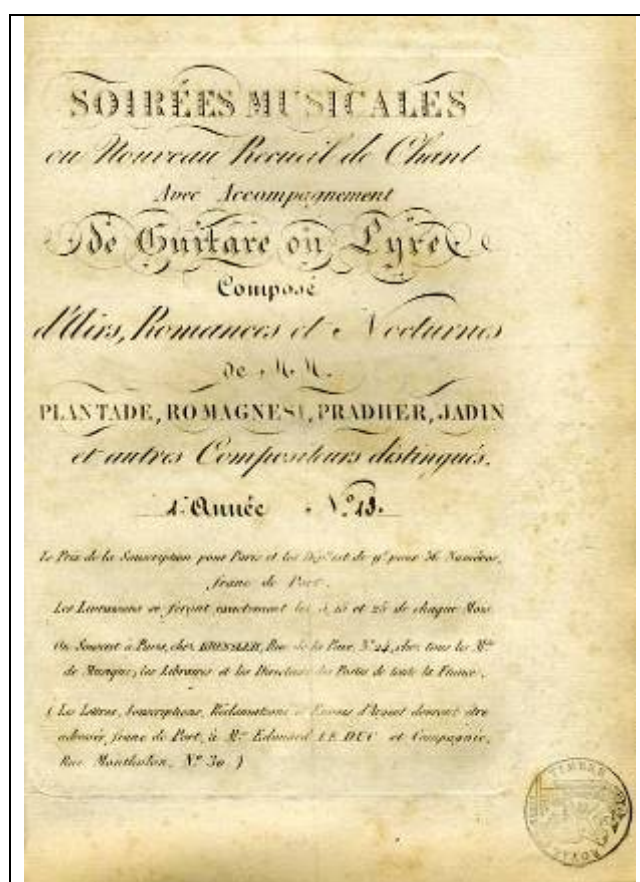 SOIRÉES MUSICALES
ou Nouveau Recueil de Chant
Avec Accompagnement
de Guitare ou Lyre
Composé
d'Airs, Romances et Nocturnes
de M.M.
PLANTADE, ROMAGNESI, PRADHER, JADIN
et autres Compositeurs distingués.
1e Année No 13.
Le Prix de la Souscription pour Paris et les est de 9f pour 36 Numéros,
franc de Port.
Les Livraisons se feront exactement les 5, 15 et 25 de chaque Mois
On Souscrit à Paris, chez Rue de la Paix, No 24, chez tous les Mds
de Musique, les Libraires et les Directeurs des Postes de toute la France.
( Les Lettres, Souscriptions, Réclamations et Envois d'Argent devront être
adressés, franc de Port, à Mr Edouard LE DUC et Compagnie,
Rue Montholon, No 30 )
TIMBRE
ROYAL